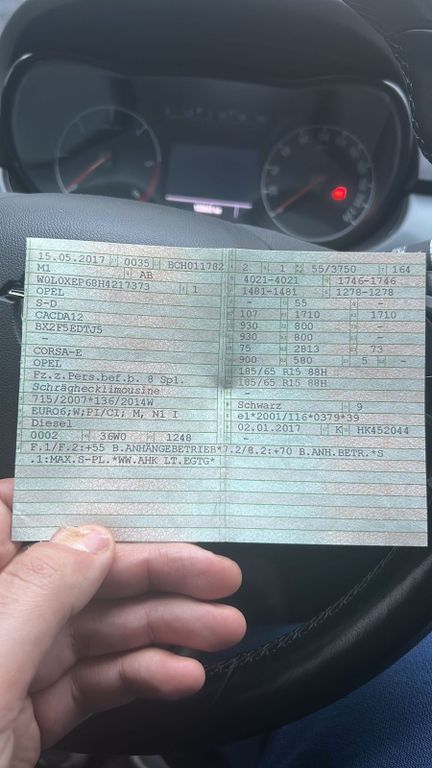 15.05.2017 0035 BCH011782
M1 AB
W0L0XEP68H4217373 1
OPEL
S-D
CACDA12
BX2F5EDTJ5
-
CORSA-E
OPEL
Fz.z.Pers.bef.b. 8 Spl.
Schräghecklimousine
715/2007*136/2014W
EURO6;W;PI/CI; M, N1 I
Diesel
0002 36W0 1248
2 1 55/3750 164
4021-4021 1746-1746
1481-1481 1278-1278
- 55 - -
107 1710 1710
930 800 -
930 800 -
75 2813 73
900 580 5 -
185/65 R15 88H
185/65 R15 88H
-
Schwarz 9
e1*2001/116*0379*39
02.01.2017 K HK452044
F.1/F.2:+55 B.ANHÄNGEBETRIEB*7.2/8.2:+70 B.ANH.BETR.*S
.1:MAX.S-PL.*WW.AHK LT.EGTG*